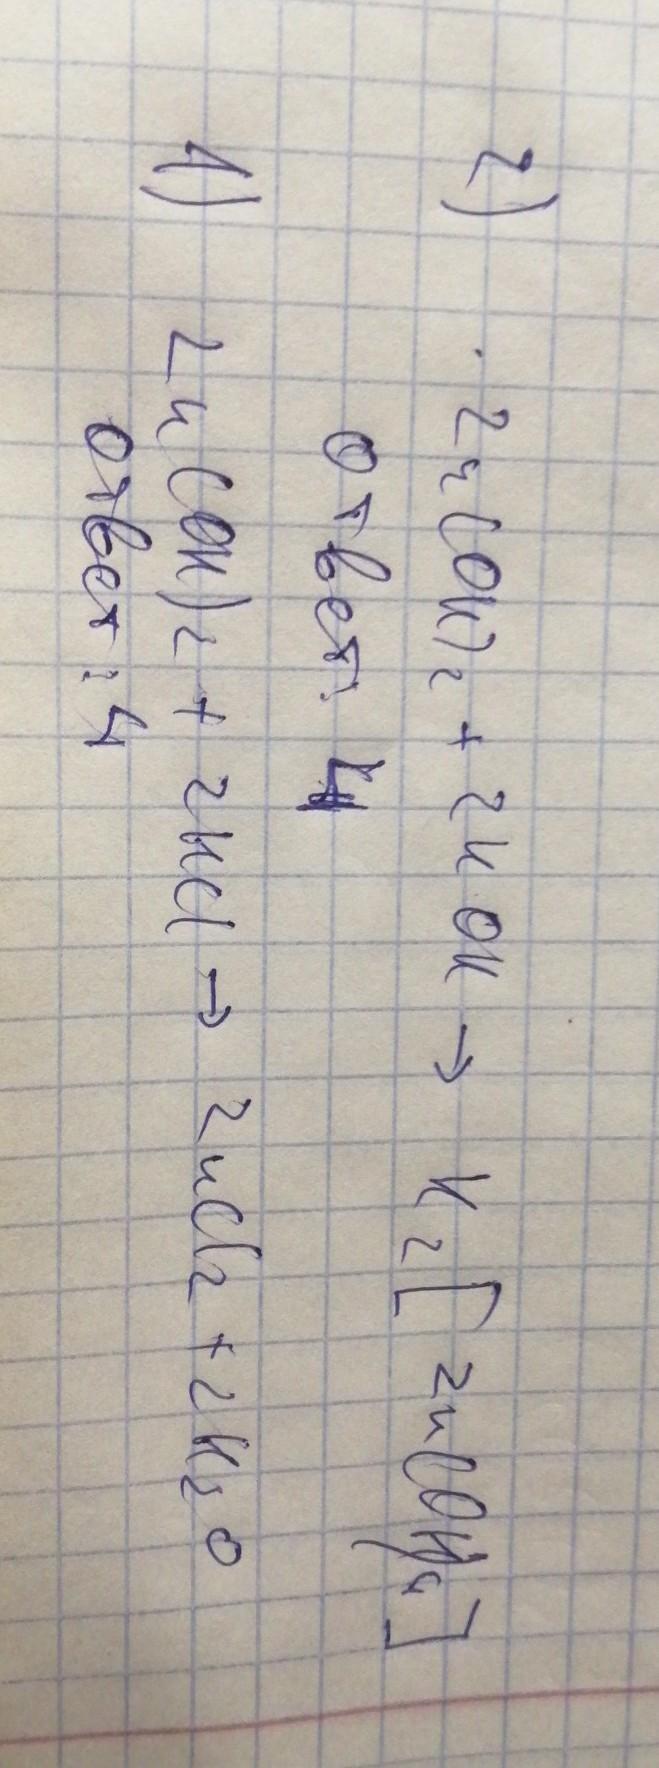 2) Zn(OH)2 + 2KOH → K2[Zn(OH)4]
ответ: 4
1) Zn(OH)2 + 2HCl → ZnCl2 + 2H2O
ответ: 4